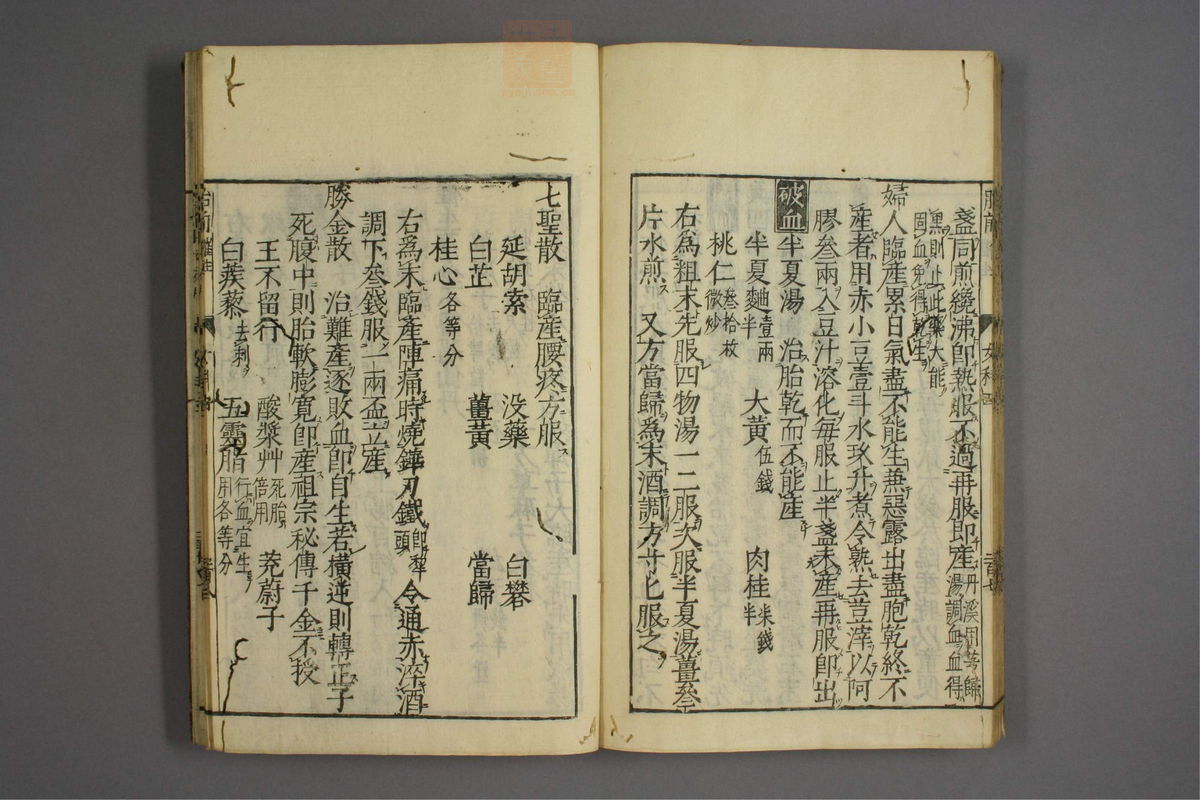 盞同煎纔沸卽熱服不過再服卽産丹溪用芎歸湯調血血得
黑則止此藥大能固血免得乾生
婦人臨産累日氣盡不能生兼惡露出盡胞乾終不
産者用赤小豆壹斗水玖升煮令熟去荳滓以阿
膠叄兩入豆汁溶化每服止半盞未産再服卽出
破血 半夏湯 治胎乾而不能産
半夏麯壹兩半 大黃伍錢 肉桂柒錢半
桃仁叄拾枚微炒
右為粗末先服四物湯一二服次服半夏湯薑叄
片水煎 又方當歸為末酒調方寸匕服之
七聖散 臨産腰疼方服
延胡索 没藥 白礬
白芷 薑黃 當歸
桂心各等分
右為末臨産陣痛時燒鏵刃鐵卽犂頭令通赤淬酒
調下叄錢服一兩盃立産
勝金散 治難産逐敗血卽自生若橫逆則轉正子
死腹中則胎軟膨寬卽産祖宗秘傳千金不授
王不留行 酸漿艸死胎倍用 茺蔚子
白蒺藜去刺 五靈脂行血宜生用各等分